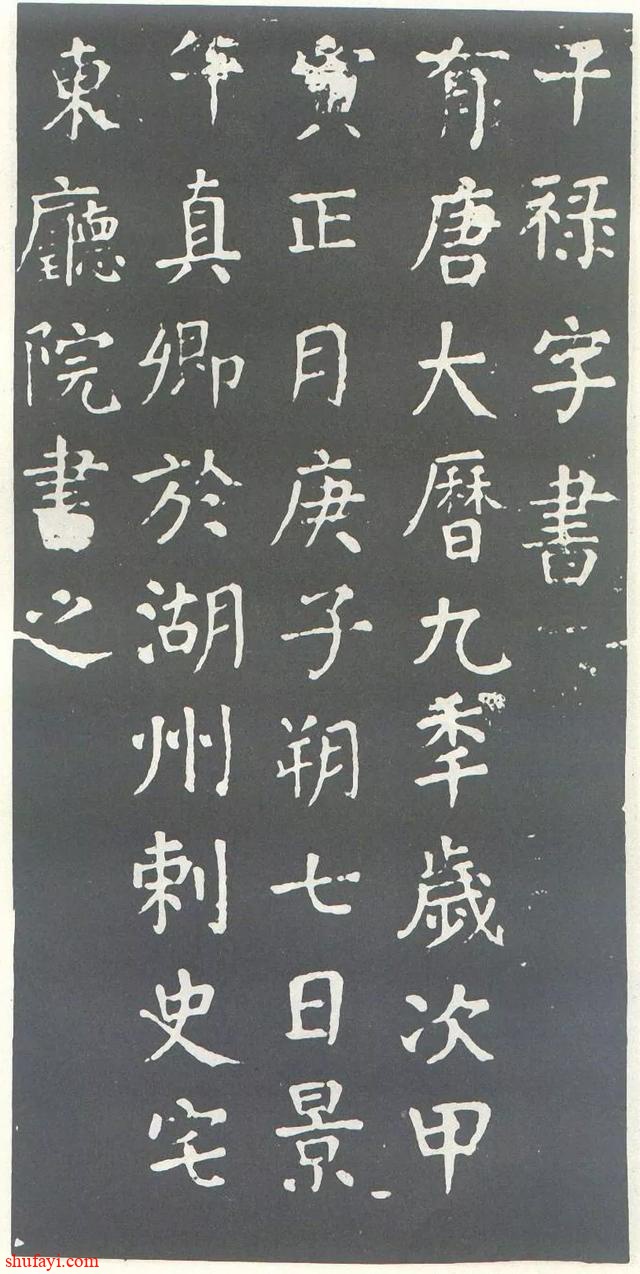 干禄字書
有唐大曆九秊歲次甲
寅正月庚子朔七日景
午真卿於湖州刺史宅
東廳院書之
shufayi.com